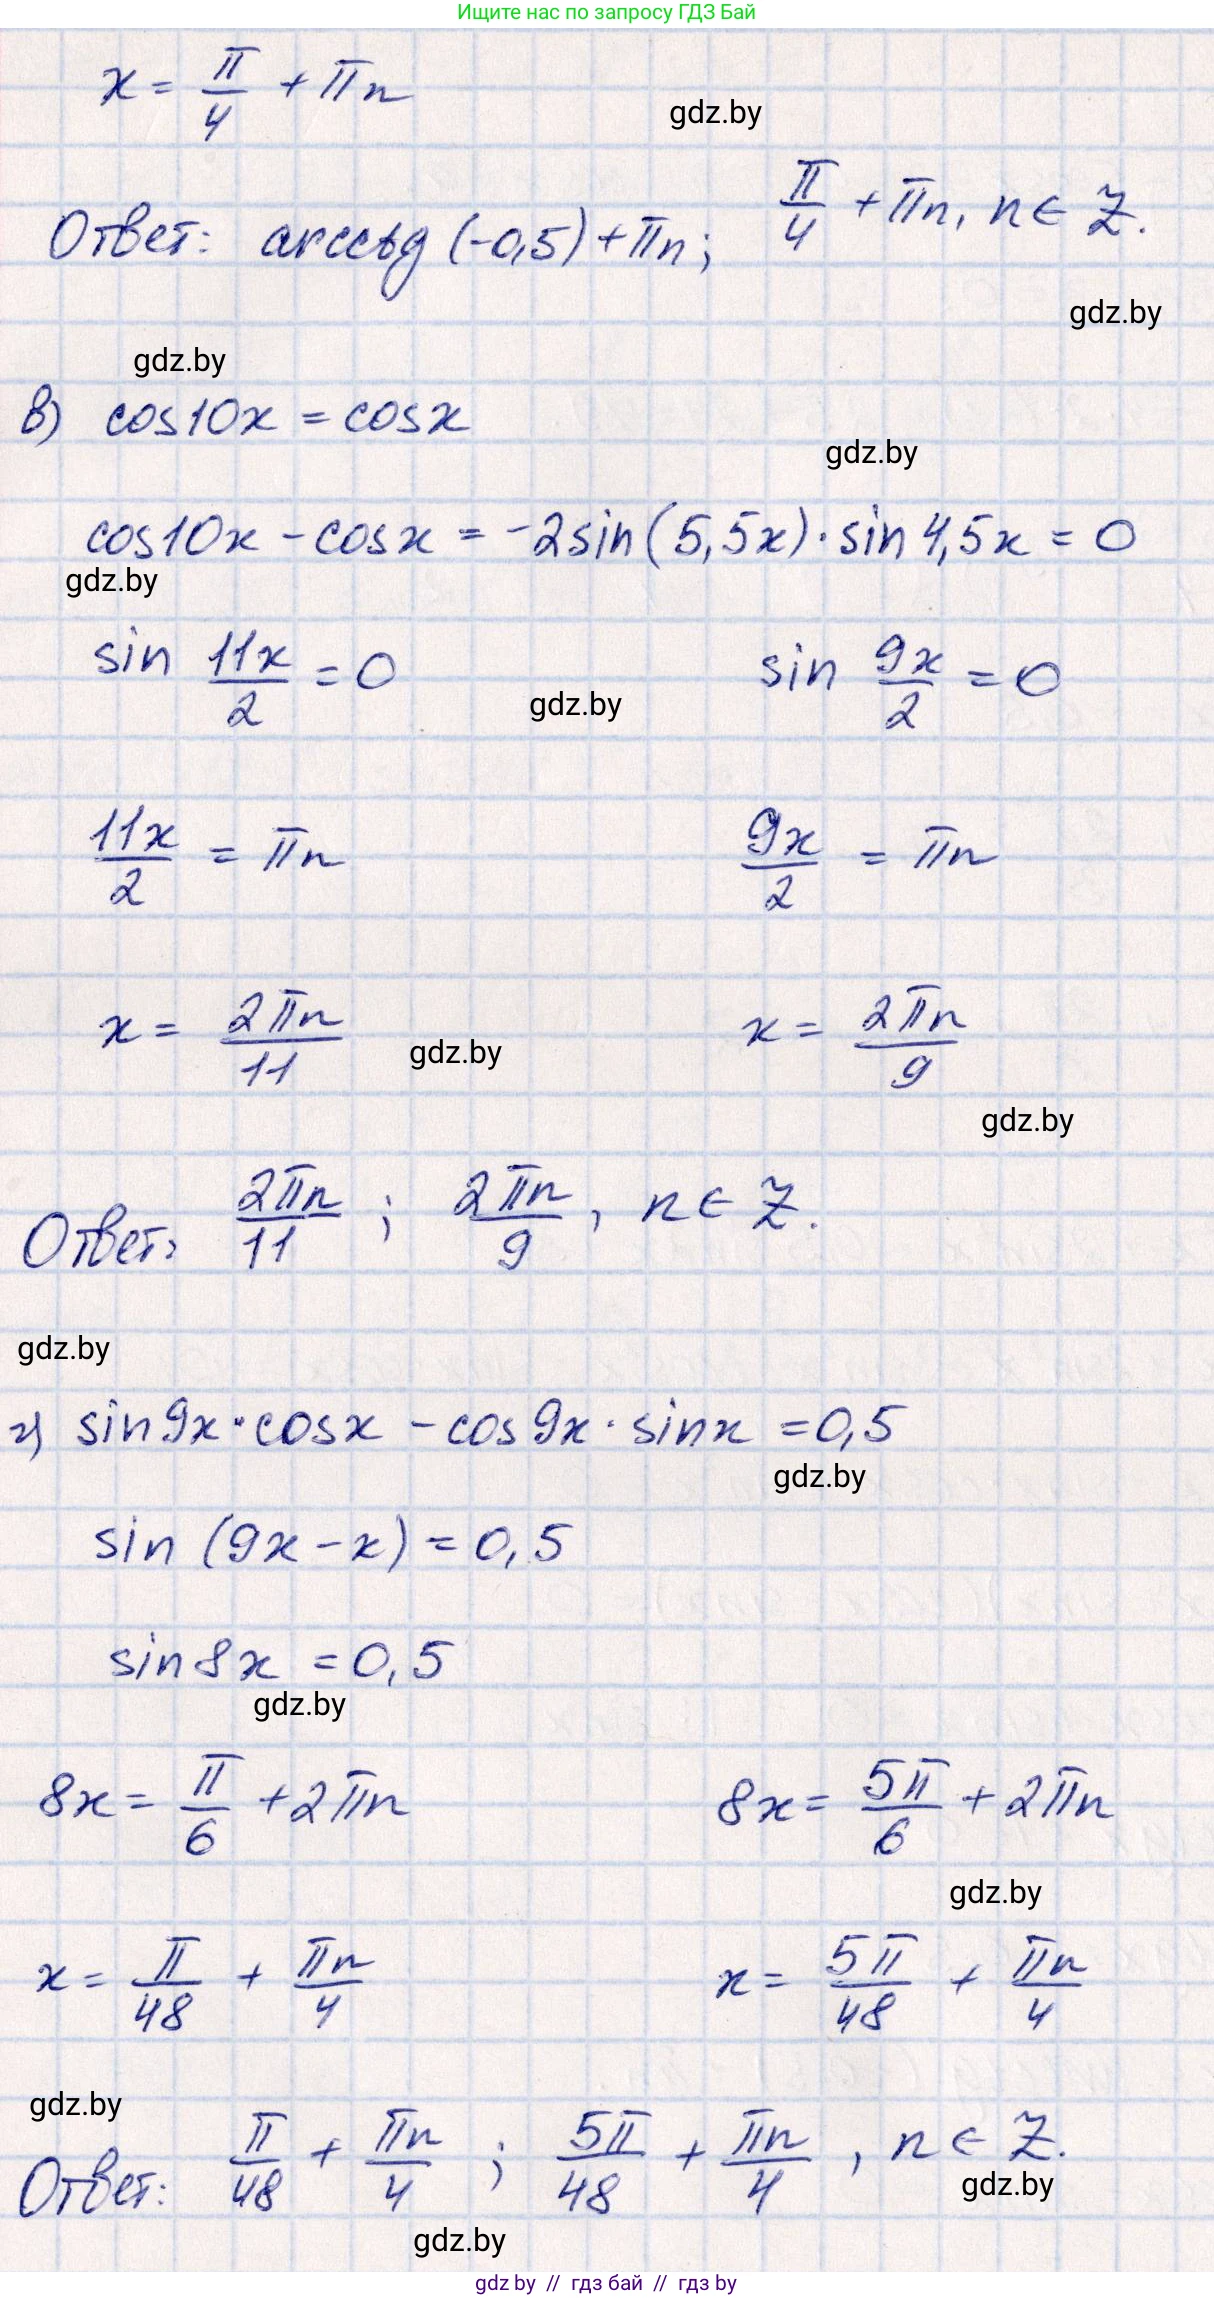 Ищите нас по запросу ГДЗ Бай
x = π/4 + πn
gdz.by
Ответ: arcctg (-0,5) + πn; π/4 + πn, n ∈ Z.
gdz.by
gdz.by
в) cos10x = cosx
gdz.by
cos10x - cosx = -2sin(5,5x)·sin4,5x = 0
gdz.by
sin 11x/2 = 0 sin 9x/2 = 0
gdz.by
11x/2 = πn 9x/2 = πn
x = 2πn/11 x = 2πn/9
gdz.by
gdz.by
Ответ: 2πn/11 ; 2πn/9, n ∈ Z.
gdz.by
г) sin9x·cosx - cos9x·sinx = 0,5
gdz.by
sin (9x - x) = 0,5
sin8x = 0,5
gdz.by
8x = π/6 + 2πn 8x = 5π/6 + 2πn
gdz.by
x = π/48 + πn/4 x = 5π/48 + πn/4
gdz.by
Ответ: π/48 + πn/4 ; 5π/48 + πn/4, n ∈ Z.
gdz.by
gdz.by
gdz by // гдз бай // gdz by